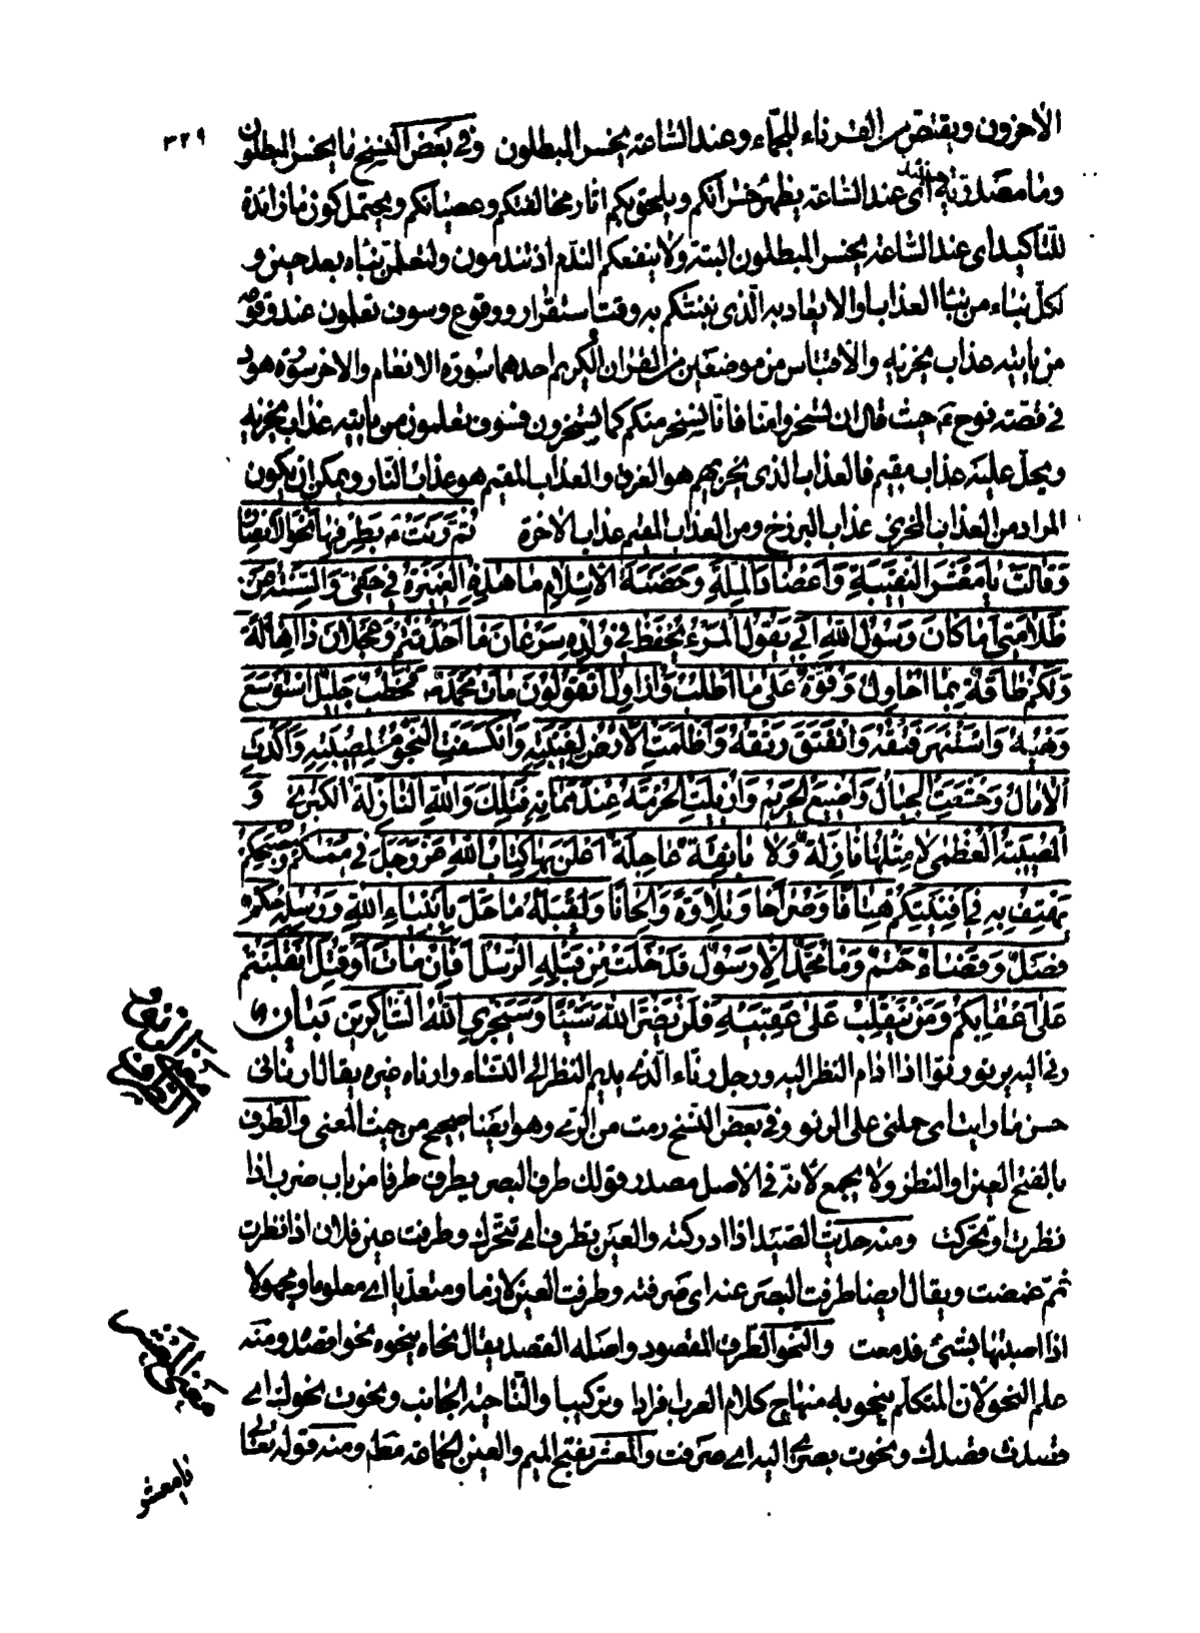 ٣٢٩
الاخرون ويقتصّ من القرناء للجمّاء وعند الساعة يخسر المبطلون وفي بعض النسخ ما يخسر المبطلون
وما مصدريّة اى عند الساعة يظهر خسرانكم ويلحق بكم اثار مخالفتكم وعصيانكم ويحتمل كون ما زائدة
للتاكيد اى عند الساعة يخسر المبطلون البتة ولا ينفعكم الندم اذ تندمون ولتعلمنّ نباه بعد حين و
لكلّ نباء من نبأ العذاب او الايعاد به الّذى نبئتكم به وقت استقرار ووقوع وسوف تعلمون عند وقوعه
من ياتيه عذاب يخزيه والاقتباس من موضعين من القران الكريم احدهما سورة الانعام والاخر سورة هود
في قصّة نوح ع حيث قال ان تسخروا منّا فانّا نسخر منكم كما تسخرون فسوف تعلمون من ياتيه عذاب يخزيه
ويحلّ عليه عذاب مقيم فالعذاب الذى يخزيهم هو الغرق والعذاب المقيم هو عذاب النّار ويمكن ان يكون
المراد من العذاب المخزى عذاب البرزخ ومن العذاب المقيم عذاب الاخرة ثُمَّ رَنَتْ بِطَرْفِها نَحْوَ الأَنْصارِ
وَقالَتْ يا مَعْشَرَ النَّقيبَةِ وَأَعْضادَ المِلَّةِ وَحَضَنَةَ الاِسْلامِ ما هذِهِ الغَميزَةُ في حَقّي وَالسِّنَةُ عَنْ
ظُلامَتي اَما كانَ رَسُولُ اللهِ اَبي يَقُولُ اَلْمَرْءُ يُحْفَظُ في وُلْدِهِ سَرْعانَ ما اَحْدَثْتُمْ وَعَجْلانَ ذا اِهالَةً
وَلَكُمْ طاقَةٌ بِما اُحاوِلُ وَقُوَّةٌ عَلى ما اَطْلُبُ وَاُزاوِلُ اَتَقُولُونَ ماتَ مُحَمَّدٌ فَخَطْبٌ جَليلٌ اسْتَوْسَعَ
وَهْيُهُ وَاسْتَنْهَرَ فَتْقُهُ وَانْفَتَقَ رَتْقُهُ وَأَظْلَمَتِ الأَرْضُ لِغَيْبَتِهِ وَانْكَسَفَتِ النُّجُومُ لِمُصيبَتِهِ وَاَكْدَتِ
الآمالُ وَخَشَعَتِ الجِبالُ وَاُضيعَ الحَريمُ وَاُزيلَتِ الحُرْمَةُ عِنْدَ مَماتِهِ فَتِلْكَ وَاللهِ النّازِلَةُ الكُبْرى وَ
المُصيبَةُ العُظْمى لا مِثْلُها نازِلَةٌ وَلا بائِقَةٌ عاجِلَةٌ اَعْلَنَ بِها كِتابُ اللهِ عَزَّ وَجَلَّ في مُمْساكُمْ وَمُصْبَحِكُمْ
يَهْتِفُ بِهِ في اَفْنِيَتِكُمْ هِتافًا وَصُراخًا وَتِلاوَةً وَاِلْحانًا وَلَقَبْلَهُ ما حَلَّ بِاَنْبِياءِ اللهِ وَرُسُلِهِ حُكْمٌ
فَصْلٌ وَقَضاءٌ حَتْمٌ وَما مُحَمَّدٌ اِلاّ رَسُولٌ قَدْ خَلَتْ مِنْ قَبْلِهِ الرُّسُلُ اَفَاِنْ ماتَ اَوْ قُتِلَ انْقَلَبْتُمْ
عَلى اَعْقابِكُمْ وَمَنْ يَنْقَلِبْ عَلى عَقِبَيْهِ فَلَنْ يَضُرَّ اللهَ شَيْئًا وَسَيَجْزِي اللهُ الشّاكِرينَ تبيان
رنى اليه يرنو رنوّا اذا ادام النظر اليه ورجل رنّاء الّذى يديم النظر الى النساء وارناه غيره يقال ارنانى
حسن ما رايت اى حملنى على الرنو وفي بعض النسخ رمت من الرمى وهو ايضا صحيح من حيث المعنى والطرف
بالفتح العين او النظر ولا يجمع لانّه في الاصل مصدر قولك طرف البصر يطرف طرفا من باب ضرب اذا
نظرت او تحرّكت ومنه حديث الصيد اذا ادركته والعين تطرف اى تتحرّك وطرفت عين فلان اذا نظرت
ثمّ غمضت ويقال ايضا طرفت البصر عنه اى صرفته وطرفت العين لازما ومتعدّيا اى معلوما ومجهولا
اذا اصبتها بشئ فدمعت والنحو الطرف المقصود واصله القصد يقال نحاه ينحوه نحوا قصده ومنه
علم النحو لان المتكلّم ينحو به منهاج كلام العرب افرادا وتركيبا والنّاحية الجانب ونحوت نحوك اى
قصدت قصدك ونحوت بصرى اليه اى صرفت والمعشر بفتح الميم والعين الجماعة مط ومنه قوله تعالى
معنى الرنو
والطرف
معنى المعشر
يا معشر